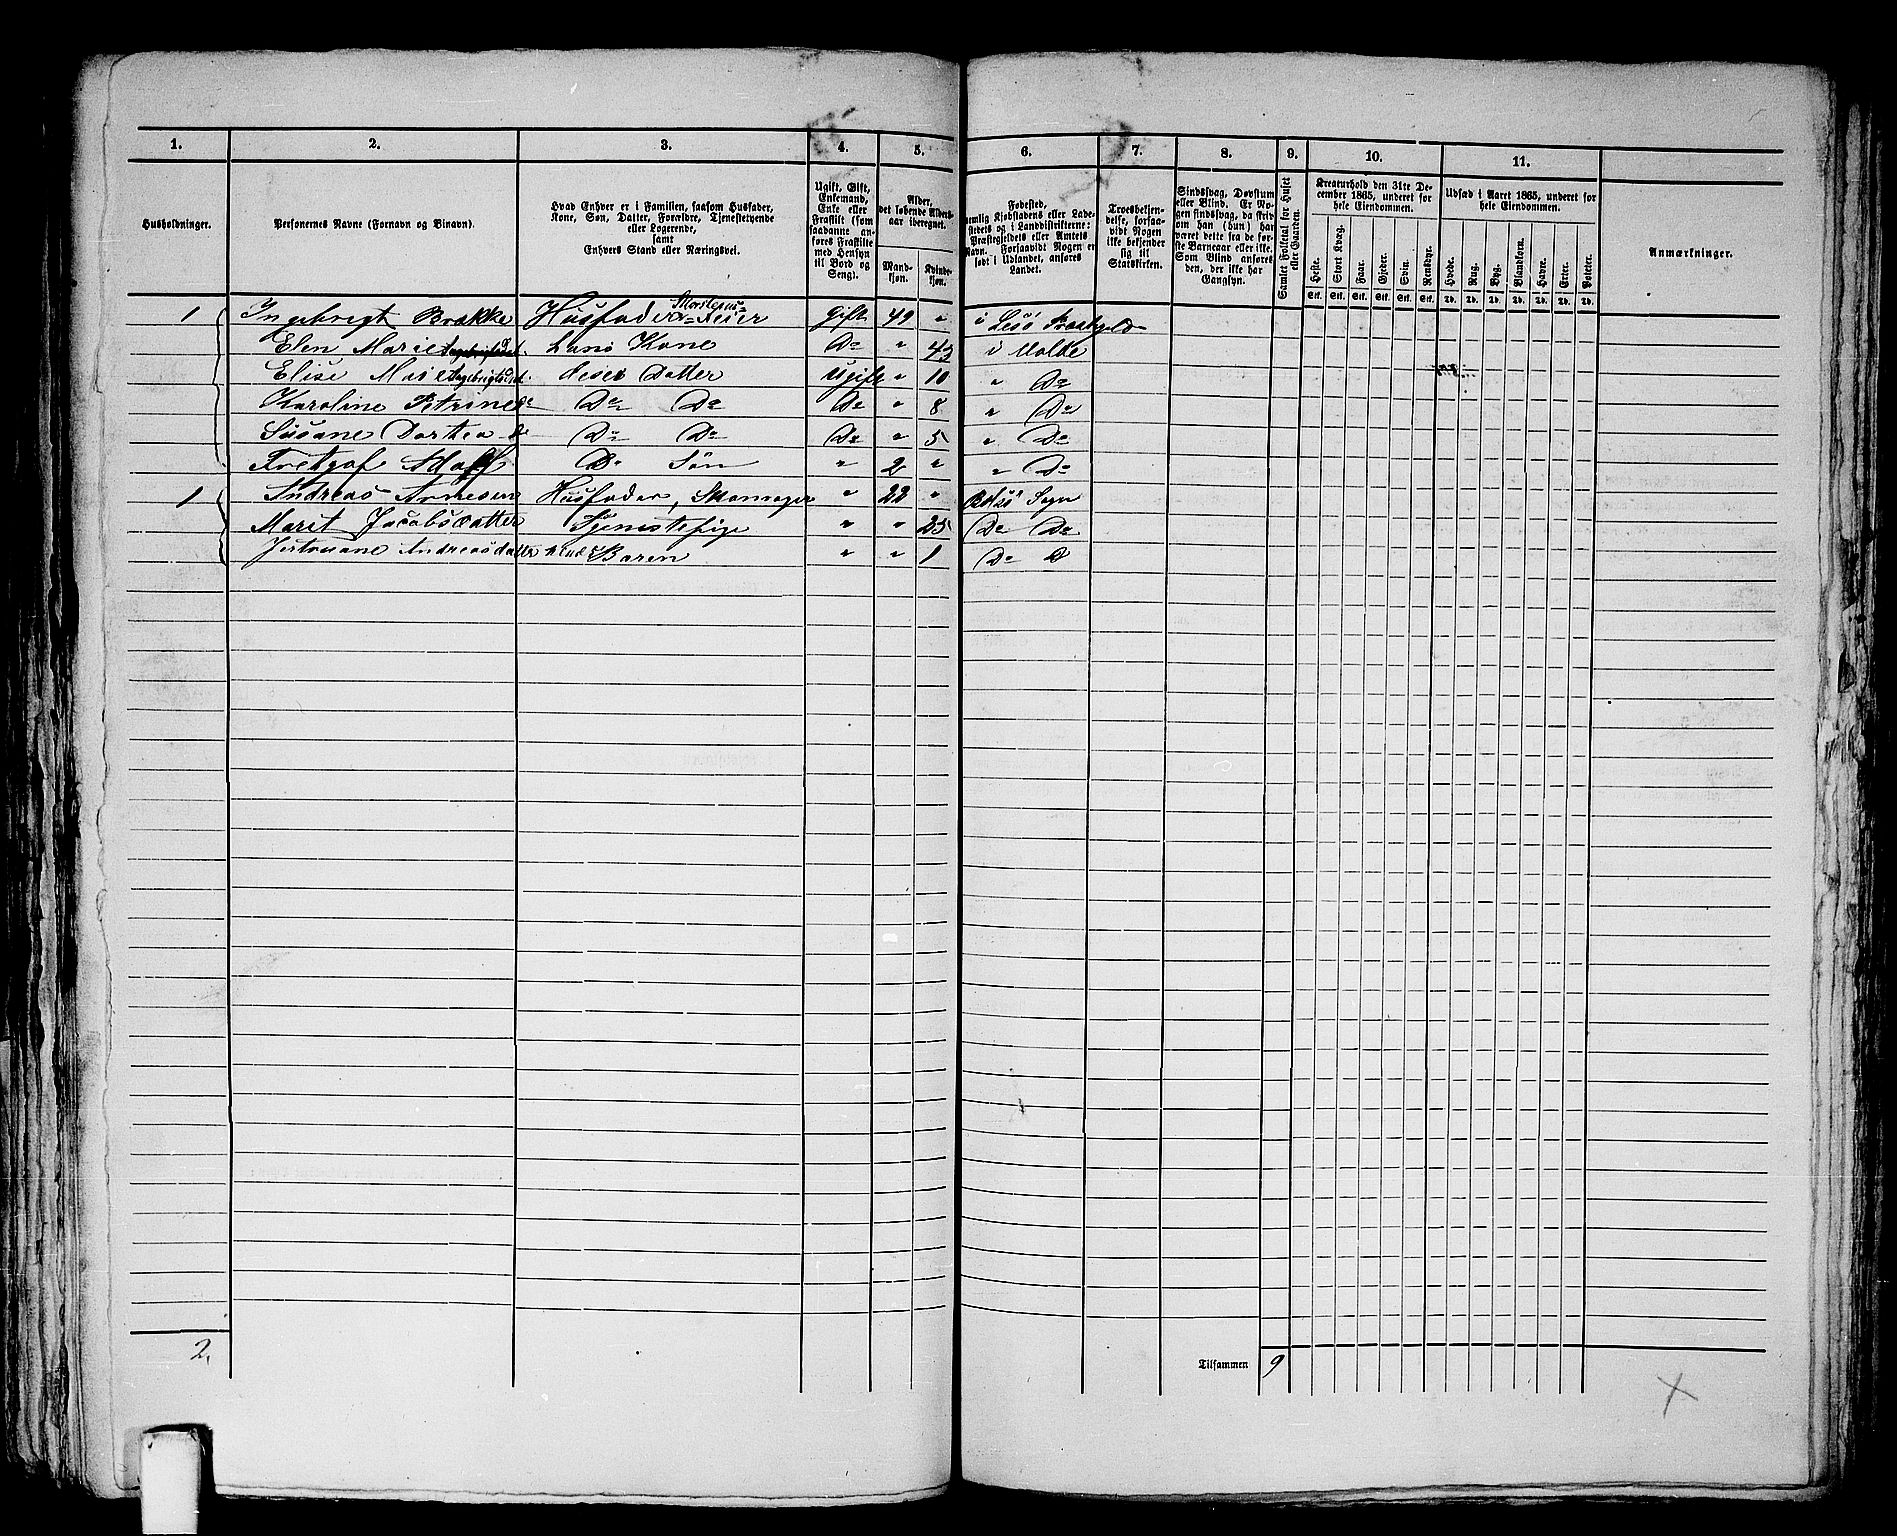 1. 2. 3. 4. 5. 6. 7. 8. 9. 10. 11.
Husholdninger.
Personernes Navne (Fornavn og Binavn).
Hvad Enhver er i Familien, saasom Husfader,
Kone, Søn, Datter, Forældre, Tjenestetyende
eller Logerende,
samt
Enhvers Stand eller Næringsvei.
Ugift, Gift,
Enkemand,
Enke eller
Fraskilt (som
saadanne an-
føres Fraskilte
med Hensyn
til Bord og
Seng).
Alder,
det løbende Alders-
aar iberegnet.
Mand-
kjøn.
Kvinde-
kjøn.
Fødested,
nemlig Kjøbstadens eller Lade-
stedets og i Landdistrikterne:
Præstegjeldets eller Amtets
Navn. Forsaavidt Nogen er
født i Udlandet, anføres
Landet.
Troesbekjen-
delse, forsaa-
vidt Nogen
ikke bekjender
sig til
Statskirken.
Sindssvag, Døvstum
eller Blind. Er No-
gen sindssvag, da skriv
om han (hun) har
været dette fra de før-
ste Barneaar eller ikke.
Som Blind anføres
den, der ikke har
Gangsyn.
Samlet Folketal for Huset
eller Gaarden.
Kreaturhold den 31te De-
cember 1865, underet for
hele Eiendommen.
Heste. Stort Kvæg. Faar. Gjeder. Svin. Rensdyr.
Stk. Stk. Stk. Stk. Stk. Stk.
Udsæd i Aaret 1865, underet for
hele Eiendommen.
Hvede. Rug. Byg. Blandkorn. Havre. Erter. Poteter.
Td. Td. Td. Td. Td. Td. Td.
Anmærkninger.
1 Ingebrigt Brakke Husfader Gift 49 " i Lesø Præstgeld
Elen Marie Hans Kone Do " 43 i Molde
Elise Marie Ingebrigtsdat. deres Datter Ugift " 10 " Do
Karoline Petrine do Do Do Do " 8 " Do
Susane Dorthea do Do Do Do " 5 " Do
Fretgof Adolf Do Søn " 2 " " Do
1 Andreas Arnesen Husfader, Skomager " 22 " Bolsø Sogn
Marit Jacobsdatter Tjenestepige " " 25 Do Do
Andreasdatter Baren " " 1 Do D
2,
Tilsammen 9
X